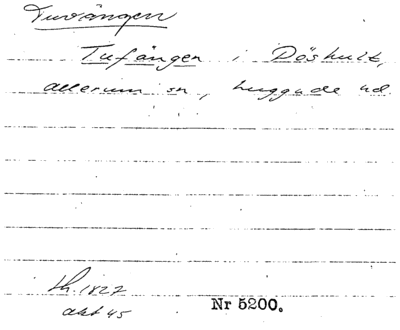 Tuvängen
Tufången i Döshult,
Allerum sn, huggade ud
Lh. 1827
akt 45
Nr 5200.